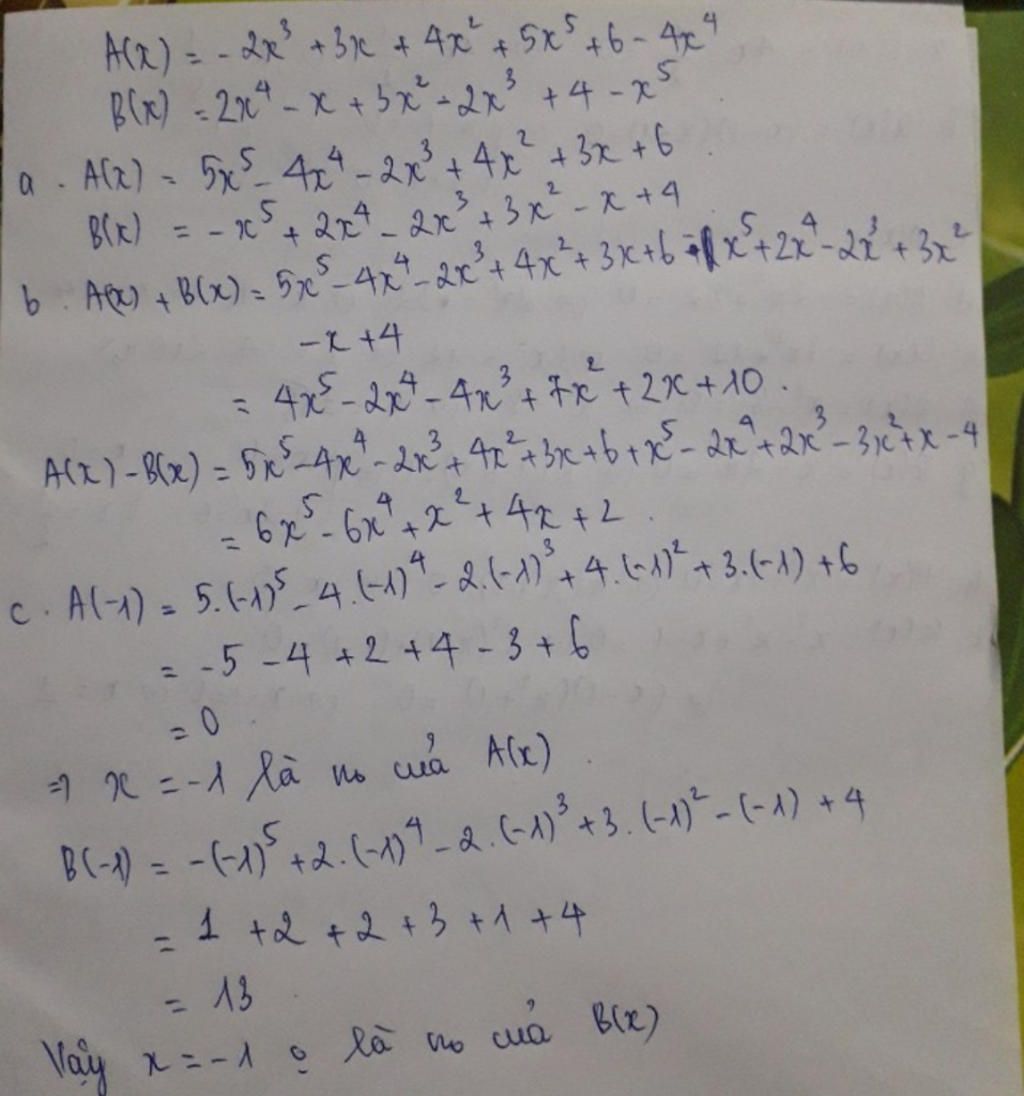 A(x) = -2x³ + 3x + 4x² + 5x⁵ + 6 - 4x⁴
B(x) = 2x⁴ - x + 3x² - 2x³ + 4 - x⁵
a. A(x) = 5x⁵ - 4x⁴ - 2x³ + 4x² + 3x + 6
B(x) = -x⁵ + 2x⁴ - 2x³ + 3x² - x + 4
b. A(x) + B(x) = 5x⁵ - 4x⁴ - 2x³ + 4x² + 3x + 6 - x⁵ + 2x⁴ - 2x³ + 3x²
-x + 4
= 4x⁵ - 2x⁴ - 4x³ + 7x² + 2x + 10.
A(x) - B(x) = 5x⁵ - 4x⁴ - 2x³ + 4x² + 3x + 6 + x⁵ - 2x⁴ + 2x³ - 3x² + x - 4
= 6x⁵ - 6x⁴ + x² + 4x + 2.
c. A(-1) = 5.(-1)⁵ - 4.(-1)⁴ - 2.(-1)³ + 4.(-1)² + 3.(-1) + 6
= -5 - 4 + 2 + 4 - 3 + 6
= 0
⇒ x = -1 là no của A(x).
B(-1) = -(-1)⁵ + 2.(-1)⁴ - 2.(-1)³ + 3.(-1)² - (-1) + 4
= 1 + 2 + 2 + 3 + 1 + 4
= 13
Vậy x = -1 o là no của B(x)